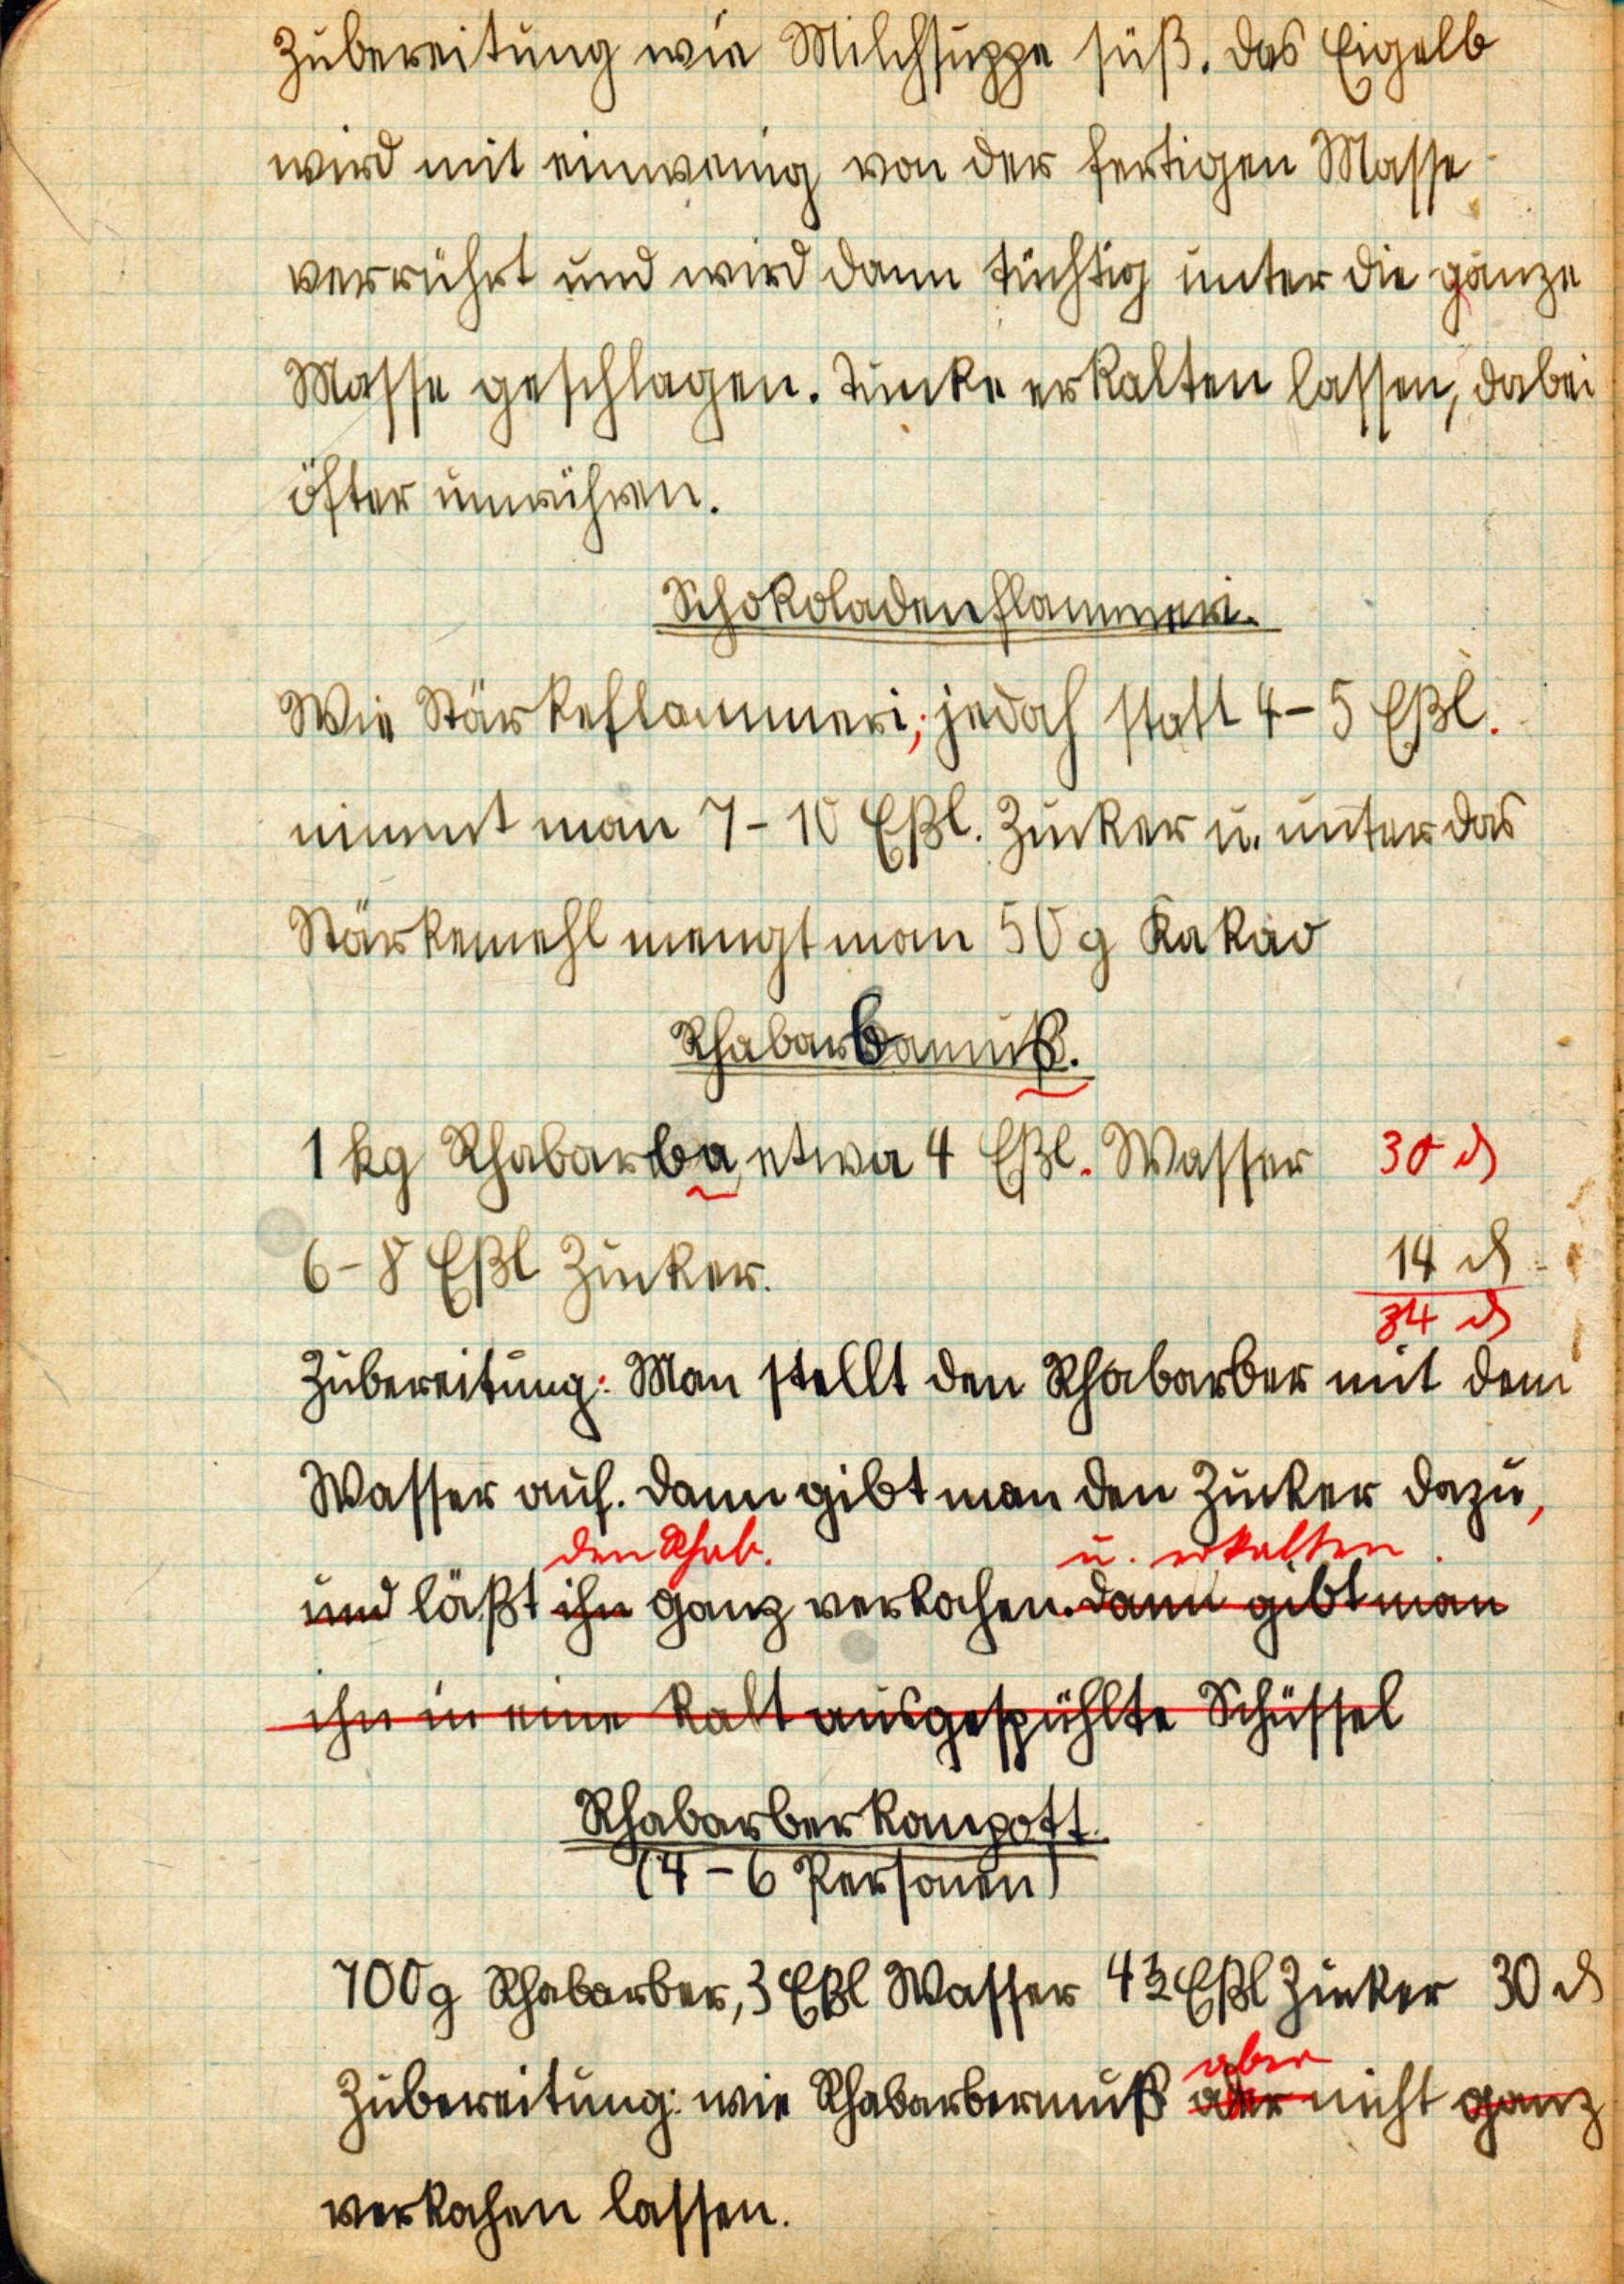 Zubereitung wie Milchsuppe süß. Das Eigelb
wird mit einwenig von der fertigen Masse
verrührt und wird dann tüchtig unter die ganze
Masse geschlagen. Tunke erkalten lassen, dabei
öfter umrühren.
Schokoladenflammeri.
Wie Stärkeflammeri; jedoch statt 4-5 Eßl.
nimmt man 7-10 Eßl. Zucker u. unter das
Stärkemehl mengt man 50 g Kakao
Rhabarbamuß.
1 kg Rhabarba, etwa 4 Eßl. Wasser 30 ₰
6-8 Eßl Zucker. 14 ₰
34 ₰
Zubereitung: Man stellt den Rhabarber mit dem
Wasser auf. Dann gibt man den Zucker dazu,
den Rhab. u. erkalten.
und läßt ihn ganz verkochen. Dann gibt man
ihn in eine kalt ausgespühlte Schüssel
Rhabarberkompott.
(4-6 Personen)
700g Rhabarber, 3 Eßl Wasser Eßl Zucker 30 ₰
aber
Zubereitung: wie Rhabarbermuß aber nicht ganz
verkochen lassen.